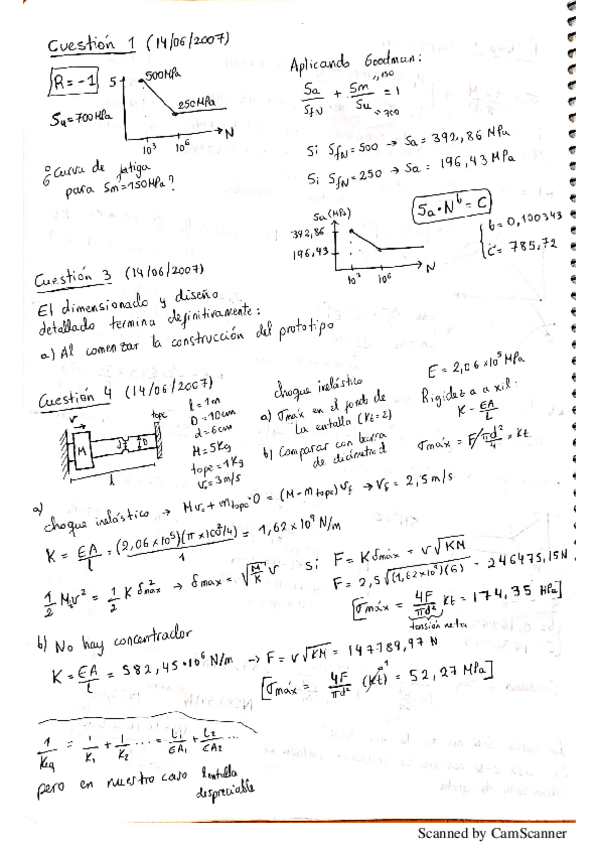 Cuestión 1 (14/06/2007)
R = -1
S
500MPa
250MPa
Su = 700MPa
N
10³ 10⁶
¿Curva de fatiga
para Sm = 150MPa?
Aplicando Goodman:
Sa/SfN + Sm/Su = 1
150
700
Si SfN = 500 → Sa = 392,86 MPa
Si SfN = 250 → Sa = 196,43 MPa
Sa · N^b = C
b = 0,100343
C = 785,72
Sa (MPa)
392,86
196,43
10³ 10⁶
N
Cuestión 3 (14/06/2007)
El dimensionado y diseño
detallado termina definitivamente:
a) Al comenzar la construcción del prototipo
Cuestión 4 (14/06/2007)
v
M
d
D
tope
l
l = 1m
D = 10cm
d = 6cm
M = 5Kg
tope = 1Kg
v₀ = 3m/s
choque inelástico
a) σmáx en el fondo de
la entalla (Kt = 2)
b) Comparar con barra
de
E = 2,06 × 10⁵ MPa
Rigidez axil:
K = EA/L
σmáx = F/(πd²/4) × Kt
a)
choque inelástico → Mv₀ + mtope·0 = (M - mtope) vf → vf = 2,5 m/s
K = EA/L = (2,06 × 10⁵)(π × 100²/4)/1 = 1,62 × 10⁹ N/m
1/2 Mv² = 1/2 K δ²máx → δmáx = √(M/K) v
Si F = K δmáx = v √KM
F = 2,5 √(1,62 × 10⁹)(6) = 246475,15N
[σmáx = 4F/πd² Kt = 174,35 MPa]
tensión neta
b) No hay concentrador
K = EA/L = 582,45 · 10⁶ N/m → F = v √KM = 147789,97 N
[σmáx = 4F/πd² (Kt) = 52,27 MPa]
1
1/Keq = 1/K1 + 1/K2 ... = L1/EA1 + L2/EA2 ...
pero en nuestro caso lentalla
despreciable
Scanned by CamScanner